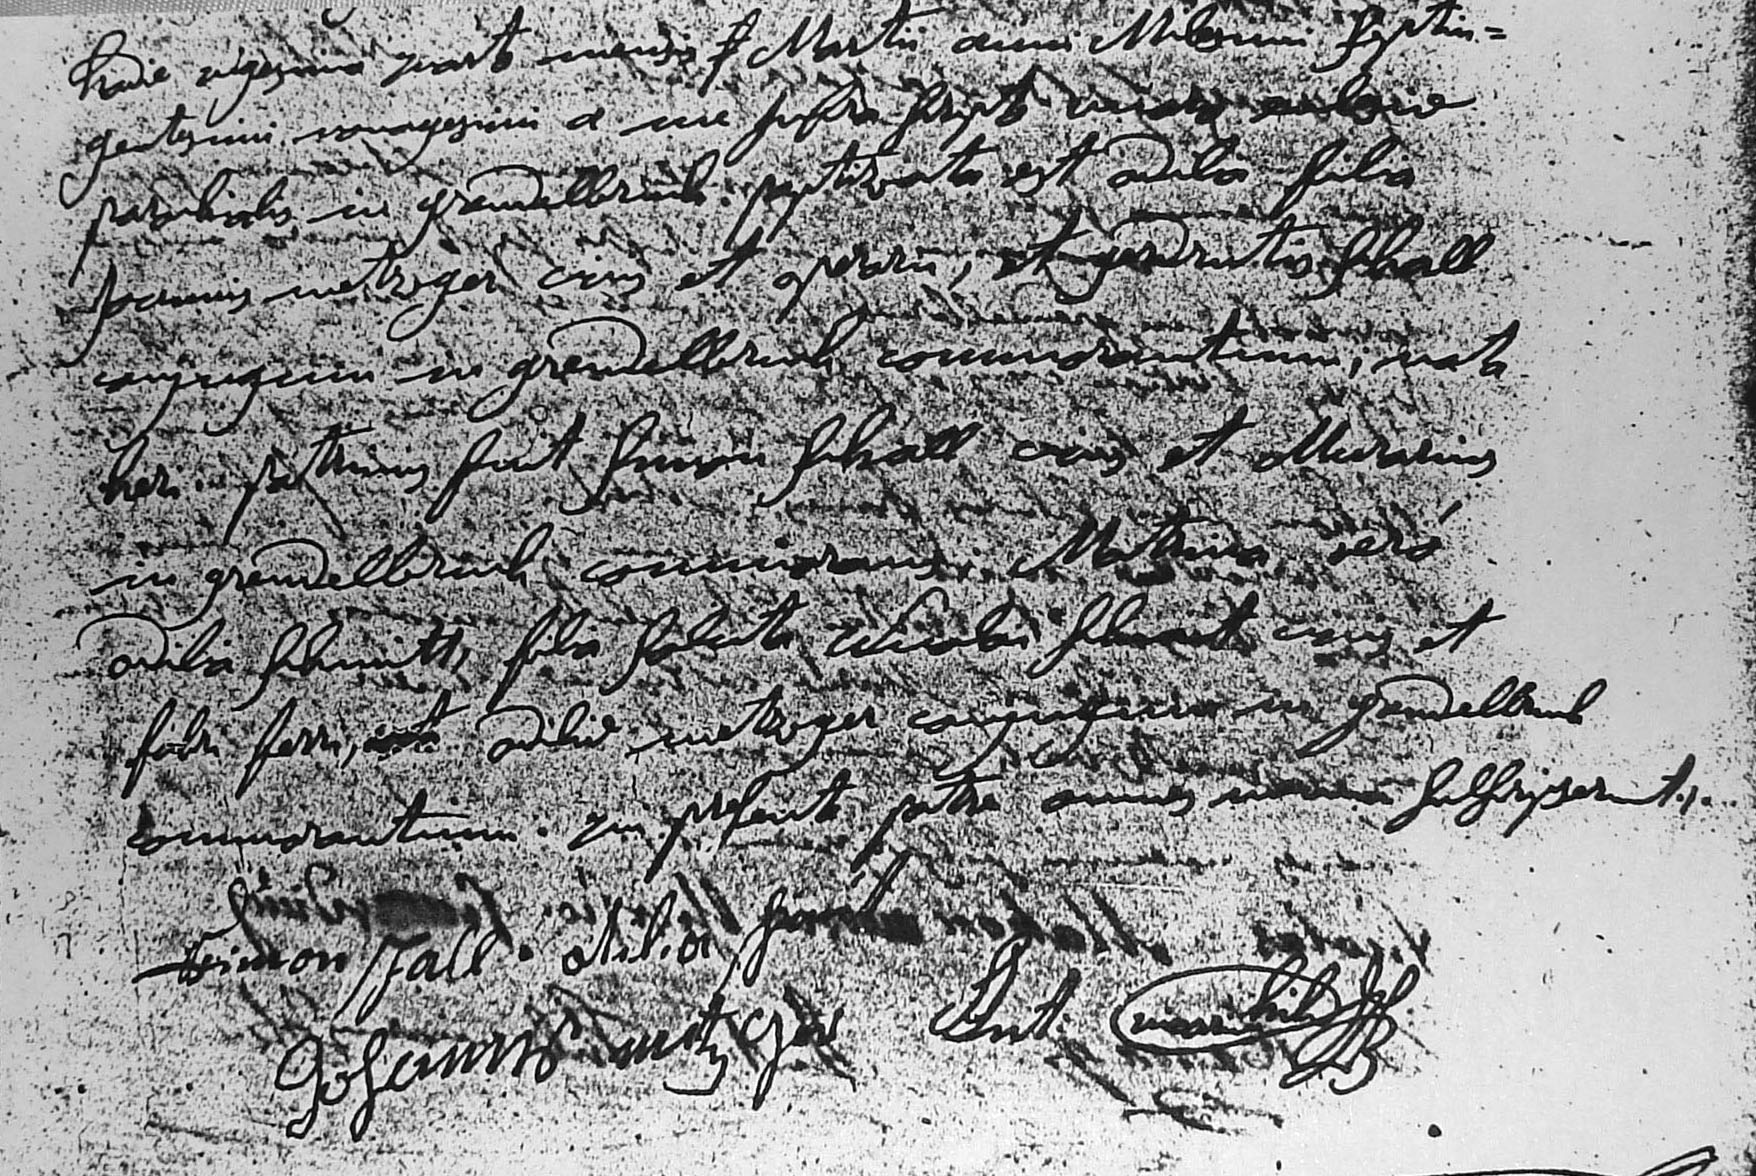 hodie vigesimo quarto mensis Martii anni Millesimi Septin=
gentesimi nonagesimi a me infra scripto vicario ecclesiæ
parochialis in grendelbruch baptizata est odilia filia
joannis metzger civis et operarii, et gertrudis schall
conjugum in grendelbruch commorantium; nata
heri. patrinus fuit simon schall civis et Murarius
in grendelbruch commorans; Matrina verò
odilia schmitt, filia soluta Nicolai schmit civis et
fabri ferri, et odiliæ metzger conjugum in grendelbruch
commorantium. qui præsente patre omnes mecum subscripserunt.
Simon schall. otilia schmit
Johannes metzger Ant.